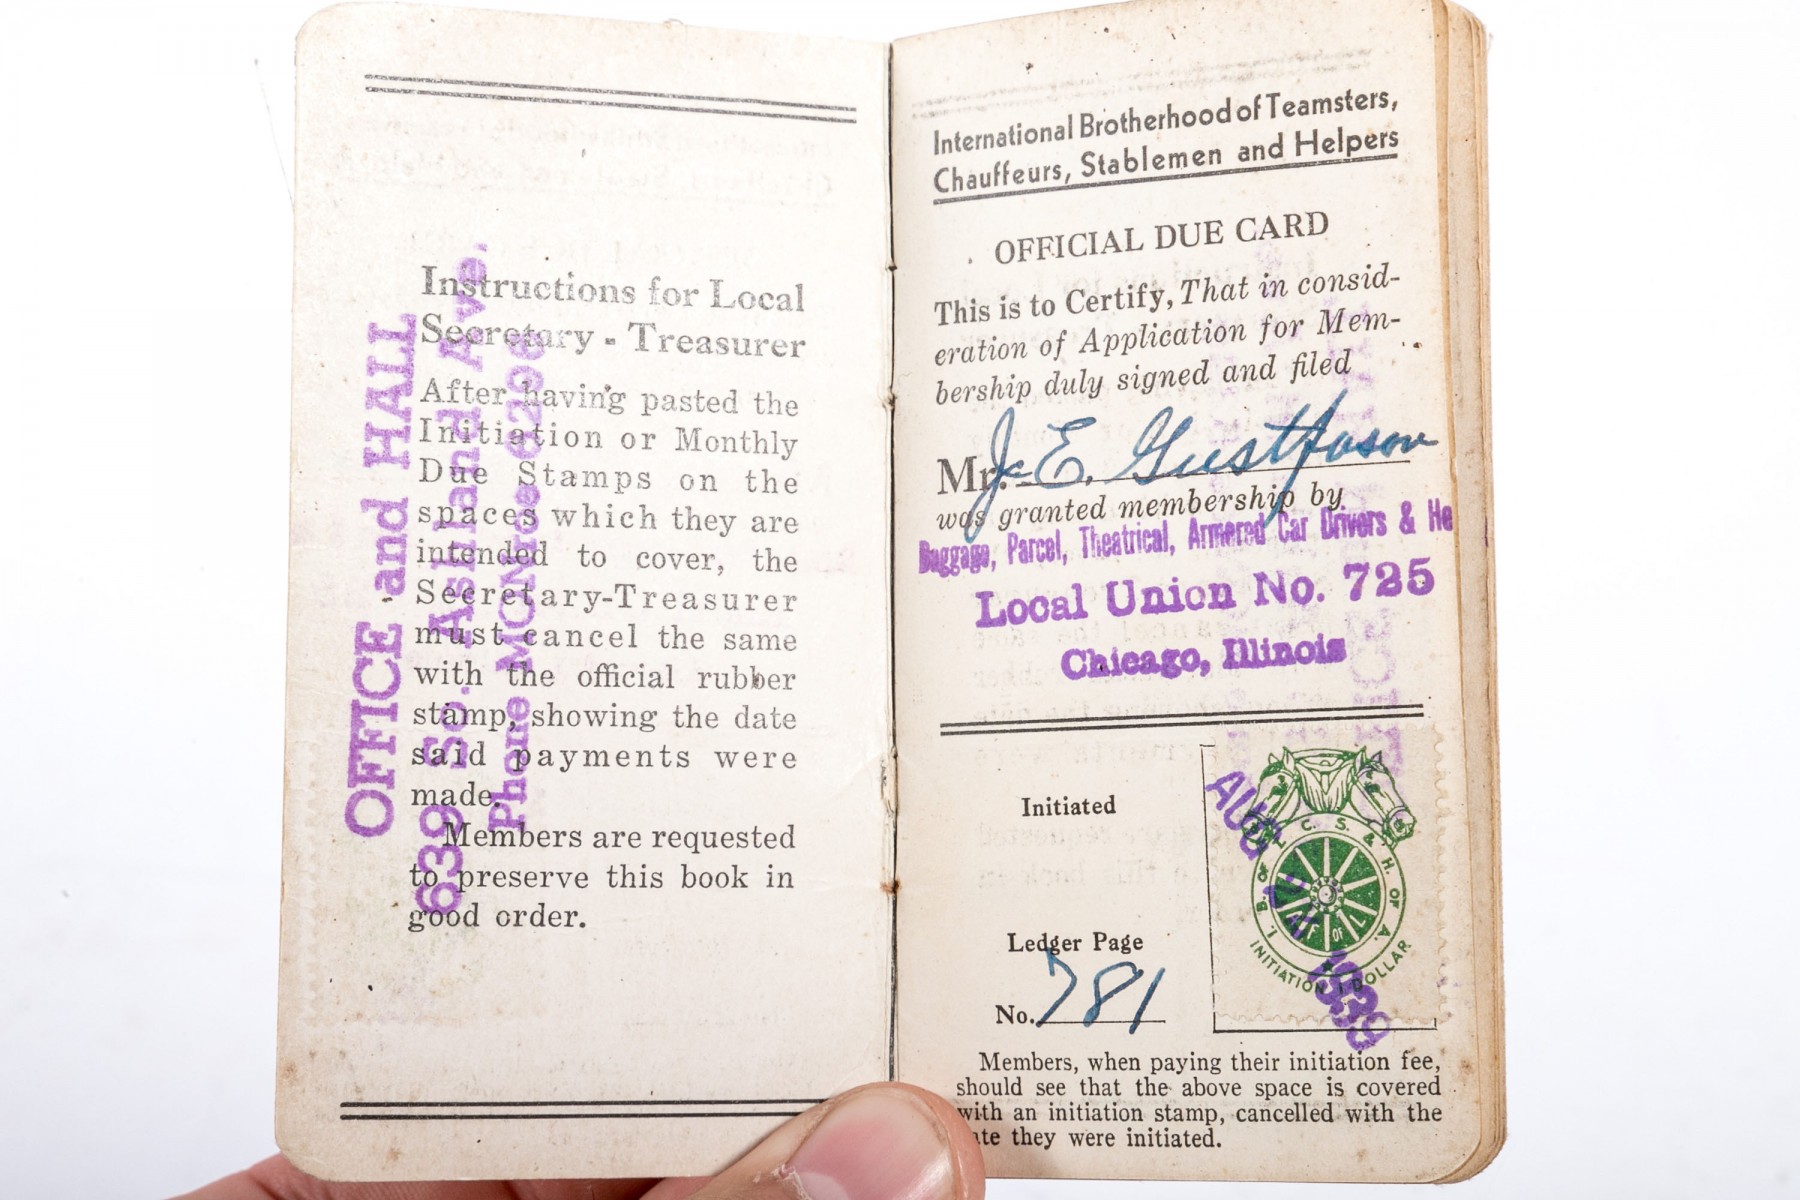 Instructions for Local
Secretary - Treasurer
After having pasted the
Initiation or Monthly
Due Stamps on the
spaces which they are
intended to cover, the
Secretary-Treasurer
must cancel the same
with the official rubber
stamp, showing the date
said payments were
made.
Members are requested
to preserve this book in
good order.
OFFICE and HALL
639 So. Ashland Ave.
Phone MONroe 6296
International Brotherhood of Teamsters,
Chauffeurs, Stablemen and Helpers
OFFICIAL DUE CARD
This is to Certify, That in consid-
eration of Application for Mem-
bership duly signed and filed
Mr. J. E. Gustafason
was granted membership by
Baggage, Parcel, Theatrical, Armered Car Drivers & He
Local Union No. 725
Chicago, Illinois
Initiated
Ledger Page
No. 781
C. S. & H. OF A.
I. B. OF
A F OF L
INITIATION 1 DOLLAR
AUG 1939
Members, when paying their initiation fee,
should see that the above space is covered
with an initiation stamp, cancelled with the
they were initiated.